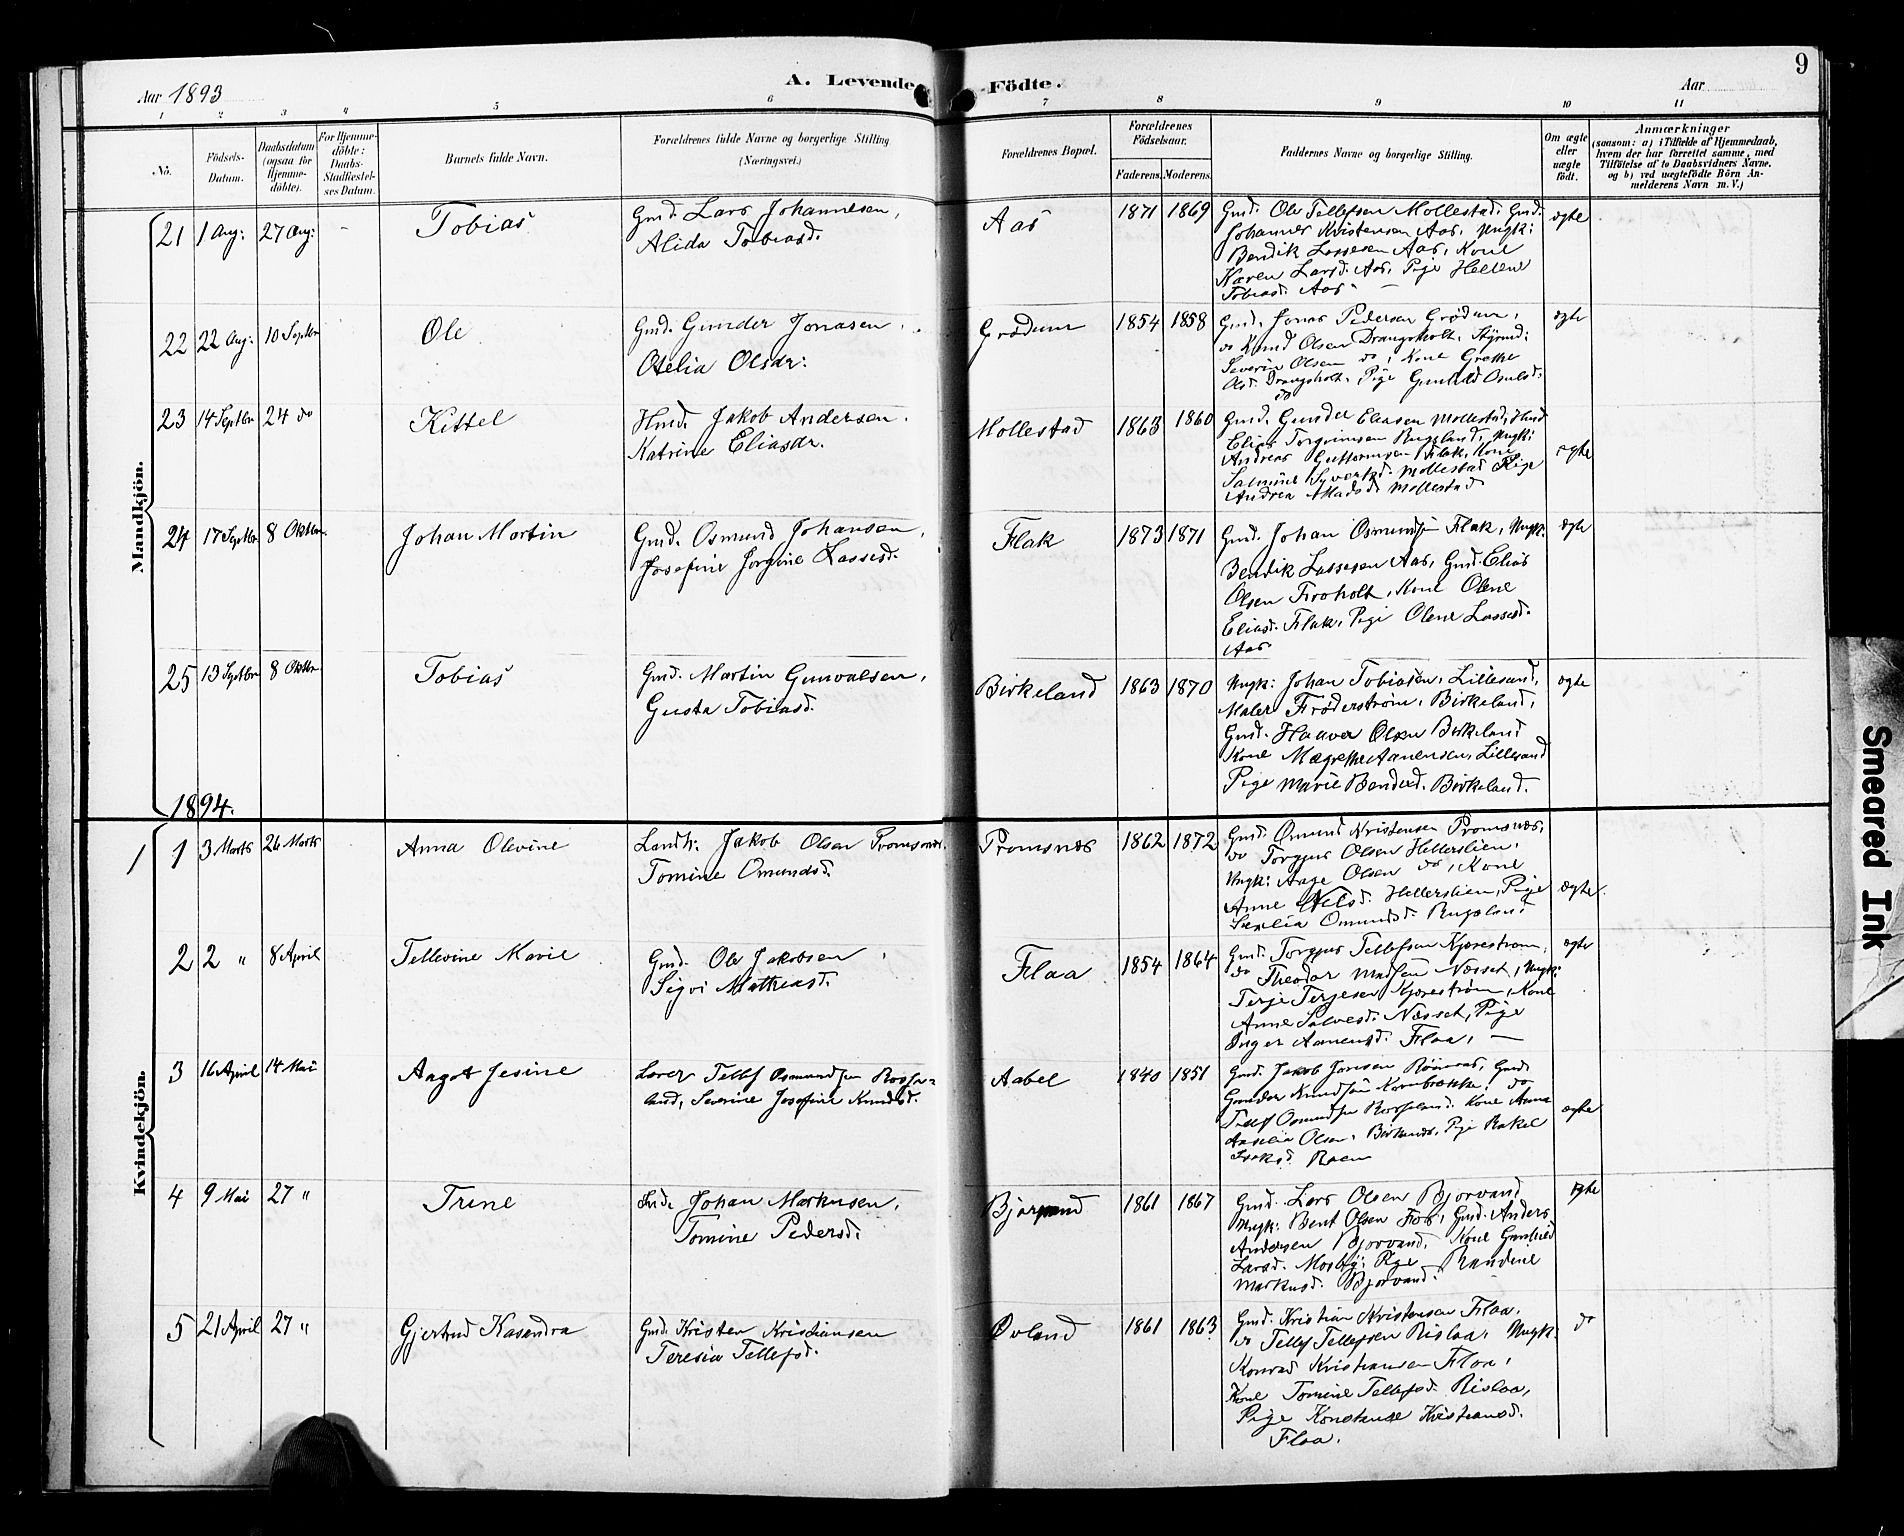 9
Aar 1893
A. Levende Födte.
Aar
1 2 3 4 5 6 7 8 9 10 11
No.
Födsels-Datum.
Daabsdatum (ogsaa for Hjemme-döbte).
For Hjemme-döbte: Daabs-Stadfæstel-ses Datum.
Barnets fulde Navn.
Forældrenes fulde Navne og borgerlige Stilling
(Næringsvei.)
Forældrenes Bopæl.
Forældrenes Födselsaar.
Faderens. Moderens.
Faddernes Navne og borgerlige Stilling.
Om ægte eller uægte födt.
Anmærkninger
(saasom: a) i Tilfælde af Hjemmedaab, hvem der har forrettet samme, med Tilföielse af to Daabsvidners Navne, og b) ved uægtefödte Börn Anmelderens Navn m. V.)
Mandkjön.
21 1 Aug: 27 Aug: - Tobias
Gmd. Lars Johannesen,
Alida Tobiasd.
Aas 1871 1869
Gmd. Ole Tellefsen Mollestad, Gmd.
Johannes Kristensen Aas, Ungk:
Bendik Lassesen Aas, Kone
Karen Larsd. Aas, Pige Hellene
Tobiasd. Aas -
ægte
22 22 Aug: 10 Septbr Ole
Gmd. Gunder Jonasen,
Otelia Olsdr:
Grødum 1854 1858
Gmd. Jonas Pedersen Grødum,
do Knud Olsen Drangsholt, Styrmd:
Severin Olsen do, Kone Grethe
Olsd. Drangsholt, Pige Gunhild Osulsd.
do
ægte
23 14 Septbr 24 do Kittel
Husd. Jakob Andersen.
Katrine Eliasdr.
Mollestad 1863 1860
Gmd. Gunder Eliasen Mollestad, Husd
Elias Torgrimsen Rugsland, Ungk:
Andreas Guttormsen Flak, Kone
Salmine Syvertsd. Mollestad Pige
Andrea Madsd. Mollestad
ægte
24 17 Septbr 8 Oktbr. Johan Martin
Gmd. Osmund Johansen,
Josefine Jorgine Lassesd.
Flak 1873 1871
Gmd. Johan Osmundsen Flak, Ungk:
Bendik Lassesen Aas, Gmd. Elias
Olsen Tiroholt, Kone Olene
Eliasd. Flak, Pige Olene Lassesd.
Aas
ægte
25 13 Septbr 8 Oktbr Tobias
Gmd. Martin Gunvalsen,
Gusta Tobiasd.
Birkeland 1863 1870
Ungk: Johan Tobiasen, Lillesand,
Maler Frøderstrøm, Birkeland,
Gmd. Haaver Olsen Birkeland
Kone Mægrethe Aanensen, Lillesand
Pige Marie Bendixd. Birkeland.
ægte
1894.
Kvindekjön.
1 3 Marts 26 Marts Anna Olevine
Landh: Jakob Olsen Promsnæs.
Tomine Omundsd.
Promsnæs 1862 1872
Gmd. Omund Kristensen Promsnæs,
do Torgjus Olsen Hellerslien,
Ungk: Aage Olsen do, Kone
Anne Nilsd. Hellerslien, Pige
Omundsd. Rugsland
ægte.
2 2 " 8 April Tellevine Marie
Gmd. Ole Jakobsen,
Sigvi Mathiasd.
Flaa 1854 1864
Gmd. Torgjus Tellefsen Kjærestrøm,
do Theodor Madsen Næsset, Ungk:
Terje Terjesen Kjærestrøm, Kone
Anne Salvesd. Næsset, Pige
Inger Aanensd. Flaa, -
ægte
3 16 April 14 Mai Aagot Jesine
Lærer Tellef Osmundsen Rosse-
land, Severine Josefine Knudsd.
Aabel 1840 1851
Gmd. Jakob Jonsen Rönnæs, Gmd
Gunder Knudsen Kornbrække, do
Tellef Osmundsen Rosseland. Kone Anna
Aaselia Olsen, Birkenæs, Pige Rakel
Isaksd. Roen
ægte
4 9 Mai 27 " Trine
Johan Markusen,
Tomine Pedersd.
Bjorvand 1861 1867
Gmd. Lars Olsen Bjorvand
Ungk: Bent Olsen Fos, Gmd. Anders
Andersen Bjorvand, Kone Gunhild
Larsd. Mosby, Pige Randine
Markusd. Bjorvand.
ægte
5 21 April 27 " Gjertrud Kasandra
Gmd. Kristen Kristiansen
Teresia Tellefsd.
Ovland 1861 1863
Gmd. Kristian Kristensen Flaa,
do Tellef Tellefsen Rislaa, Ungk:
Konrad Kristiansen Flaa,
Kone Tomine Tellefsd. Rislaa,
Pige Konstanse Kristiansd.
Flaa.
do
Smeared Ink